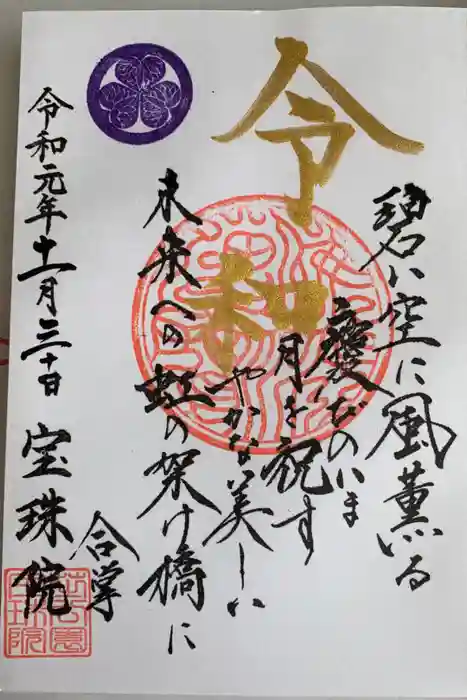 令和
碧い空に風薫る
慶びのいま
月を祝す
やかな美しい
未来への虹の架け橋に
合掌
令和元年十一月三十日 宝珠院